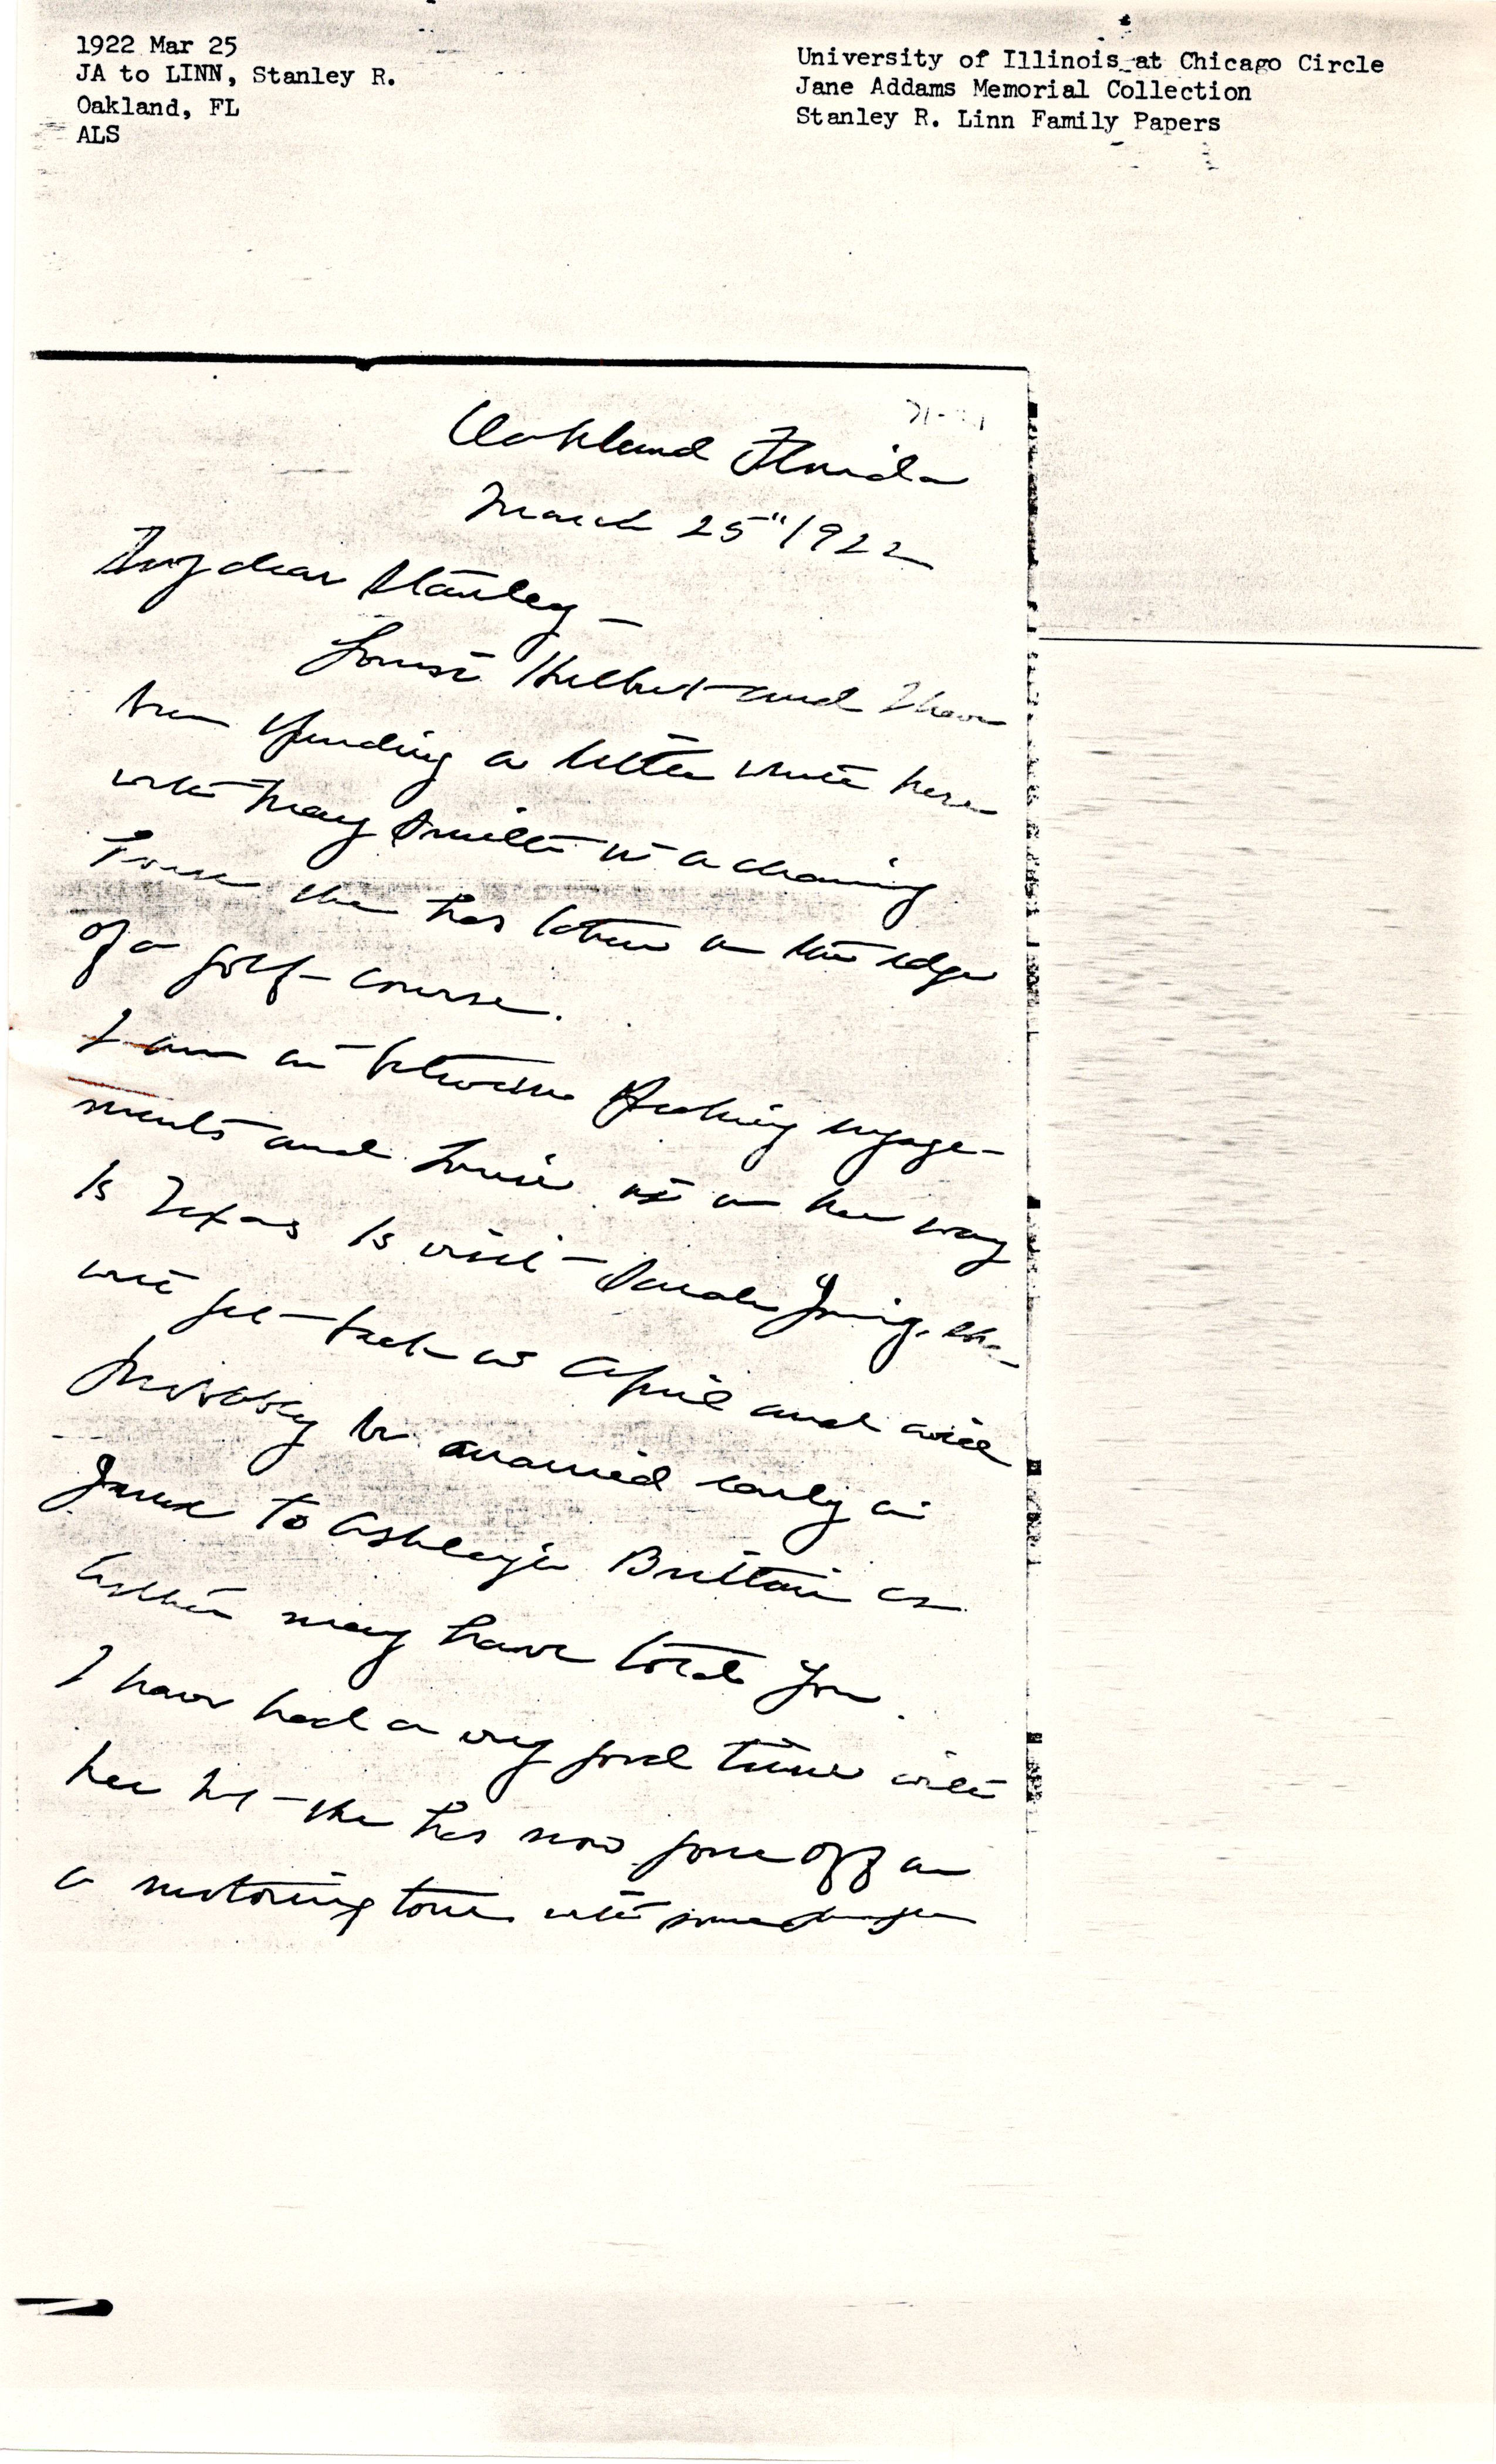 1922 Mar 25
JA to LINN, Stanley R.
Oakland, FL
ALS
University of Illinois at Chicago Circle
Jane Addams Memorial Collection
Stanley R. Linn Family Papers
Oakland Florida
March 25" 1922
My dear Stanley –
Louise Hulbert and I have
been spending a little while here
with Mary Smith in a charming
house she has taken on the edge
of a golf course.
I am in between speaking engage-
ments and Louise is on her way
to Texas to visit Sarah Young. she
will get back in April and will
probably be married early in
June to Ashleigh Brittain as
Esther may have told you.
I have had a very good time with
her but she has now gone off on
a motoring tour with some